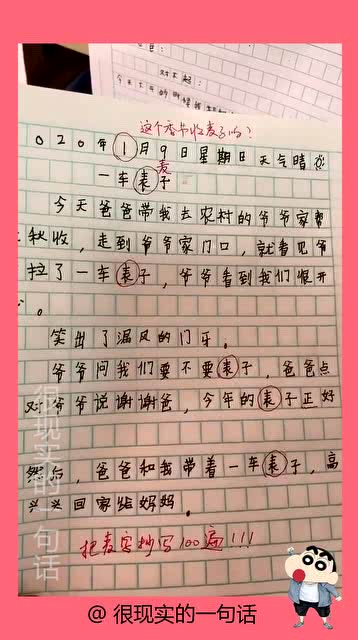 对不起:
这个季节收麦子吗?
020年1月9日星期日天气晴
麦
一车表子
今天爸爸带我去农村的爷爷家帮
秋收，走到爷爷家门口，就看见爷
拉了一车表子，爷爷看到我们很开
。
笑出了漏风的门牙。
爷爷问我们要不要表子，爸爸点
对爷爷说谢谢爸，今年的表子正好
然后，爸爸和我带着一车表子，高
兴兴回家给妈妈。
把麦字抄写100遍!!!
很现实的一句话
@ 很现实的一句话